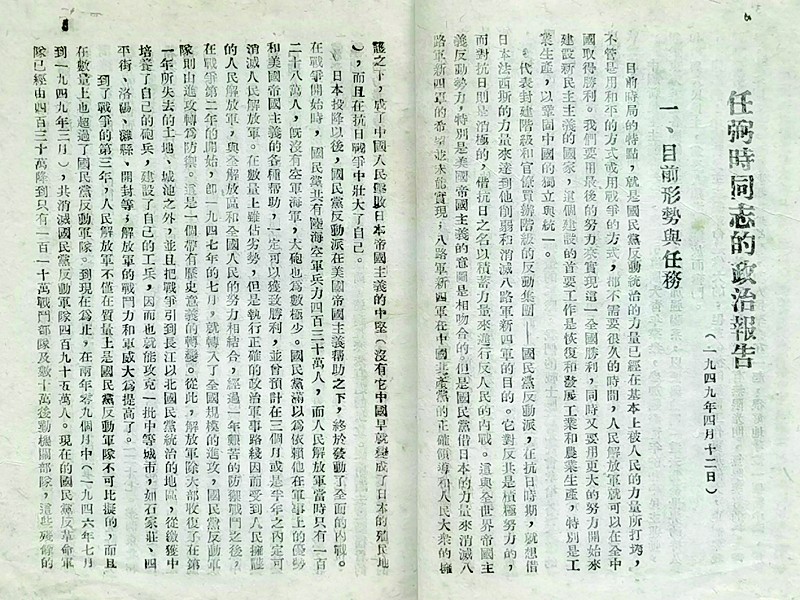 任弼時同志的政治報告
（一九四九年四月十二日）
一、目前形勢與任務
目前時局的特點，就是國民黨反動統治的力量已經在基本上被人民的力量所打垮，
不管是用和平的方式或用戰爭的方式，都不需要很久的時間，人民解放軍就可以在全中
國取得勝利。我們要用最後的努力來實現這一全國勝利，同時又要用更大的努力開始來
建設新民主主義的國家，這個建設的首要工作是恢復和發展工業和農業生產，特別是工
業生產，以鞏固中國的獨立與統一。
代表封建階級和官僚買辦階級的反動集團——國民黨反動派，在抗日時期，就想借
日本法西斯的力量來達到他削弱和消滅八路軍新四軍的目的。它對反共是積極努力的，
而對抗日則是消極的，借抗日之名以積蓄力量來進行反人民的內戰。這與全世界帝國主
義反動勢力，特別是美國帝國主義的意圖是相吻合的。但是國民黨借日本的力量來消滅八
路軍新四軍的希望並未能實現，八路軍新四軍在中國共產黨的正確領導和人民大衆的擁
護之下，成了中國人民擊敗日本帝國主義的中堅（沒有它中國早就變成了日本的殖民地
），而且在抗日戰爭中壯大了自己。
日本投降以後，國民黨反動派在美國帝國主義幫助之下，終於發動了全面的內戰。
在戰爭開始時，國民黨共有陸海空軍兵力四百三十萬人，而人民解放軍當時只有一百
二十八萬人，既沒有空軍海軍，大砲也爲數極少。國民黨滿以爲依賴他在軍事上的優勢
和美國帝國主義的各種幫助，一定可以獲致勝利，並曾預計在三個月或是半年之內定可
消滅人民解放軍。在數量上雖佔劣勢，但是執行正確的政治軍事路綫因而受到人民擁護
的人民解放軍，與全解放區和全國人民的努力相結合，經過一年艱苦的防禦戰鬥之後，
在戰爭第二年的開始，即一九四七年的七月，就轉入了全國規模的進攻，國民黨反動軍
隊則由進攻轉爲防禦。這是一個帶有歷史意義的轉變。從此，解放軍除大部收復了在第
一年所失去的土地、城池之外，並且把戰爭引到長江以北國民黨統治的地區，從繳獲中
培養了自己的砲兵，建設了自己的工兵，因而也就能攻克一批中等城市，如石家莊、四
平街、洛陽、濰縣、開封等；解放軍的戰鬥力和軍威大爲提高了。
到了戰爭的第三年，人民解放軍不僅在質量上是國民黨反動軍隊不可比擬的，而且
在數量上也超過了國民黨反動軍隊。到現在爲止，在兩年零九個月中（一九四六年七月
到一九四九年三月），共消滅國民黨反動軍隊四百九十五萬人。現在的國民黨反革命軍
隊已經由四百三十萬降到只有一百一十萬戰鬥部隊及數十萬後勤機關部隊，這些殘餘的